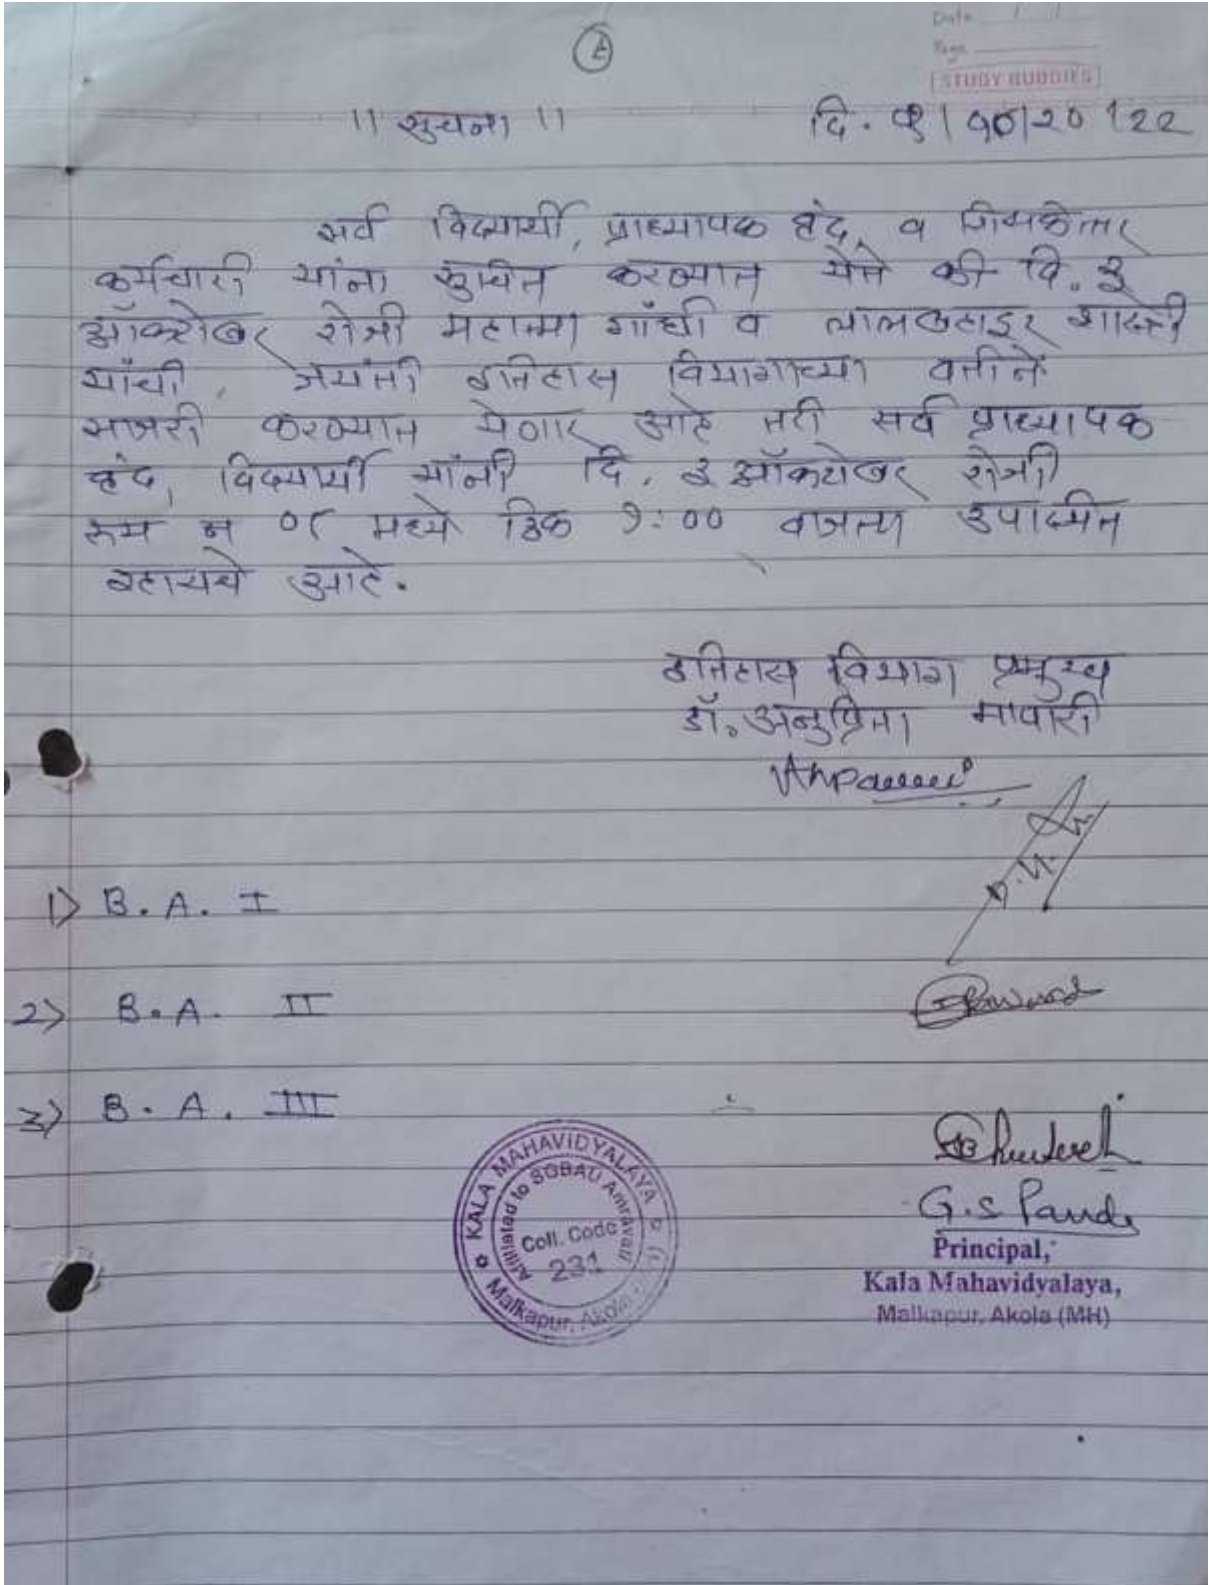 Date / /
Page
STUDY BUDDIES
|| सुचना || दि. १|१०|२०|२२
सर्व विद्यार्थी, प्राध्यापक वृंद, व शिक्षकेत्तर
कर्मचारी यांना सुचित करण्यात येते की दि. ३
ऑक्टोबर रोजी महात्मा गांधी व लालबहादुर शास्त्री
यांची, जयंती इतिहास विभागाच्या वतीने
साजरी करण्यात येणार आहे तरी सर्व प्राध्यापक
वृंद, विद्यार्थी यांनी दि. ३ ऑक्टोबर रोजी
रूम न ०८ मध्ये ठिक ९:०० वाजता उपस्थित
रहायचे आहे.
इतिहास विभाग प्रमुख
डॉ. अनुप्रिता मापारी
1) B. A. I
2) B. A. II
3) B. A. III
KALA MAHAVIDYALAYA
Affiliated to SGBAU Amravati
Coll. Code
231
Malkapur, Akola
G.S Pande
Principal,
Kala Mahavidyalaya,
Malkapur, Akola (MH)